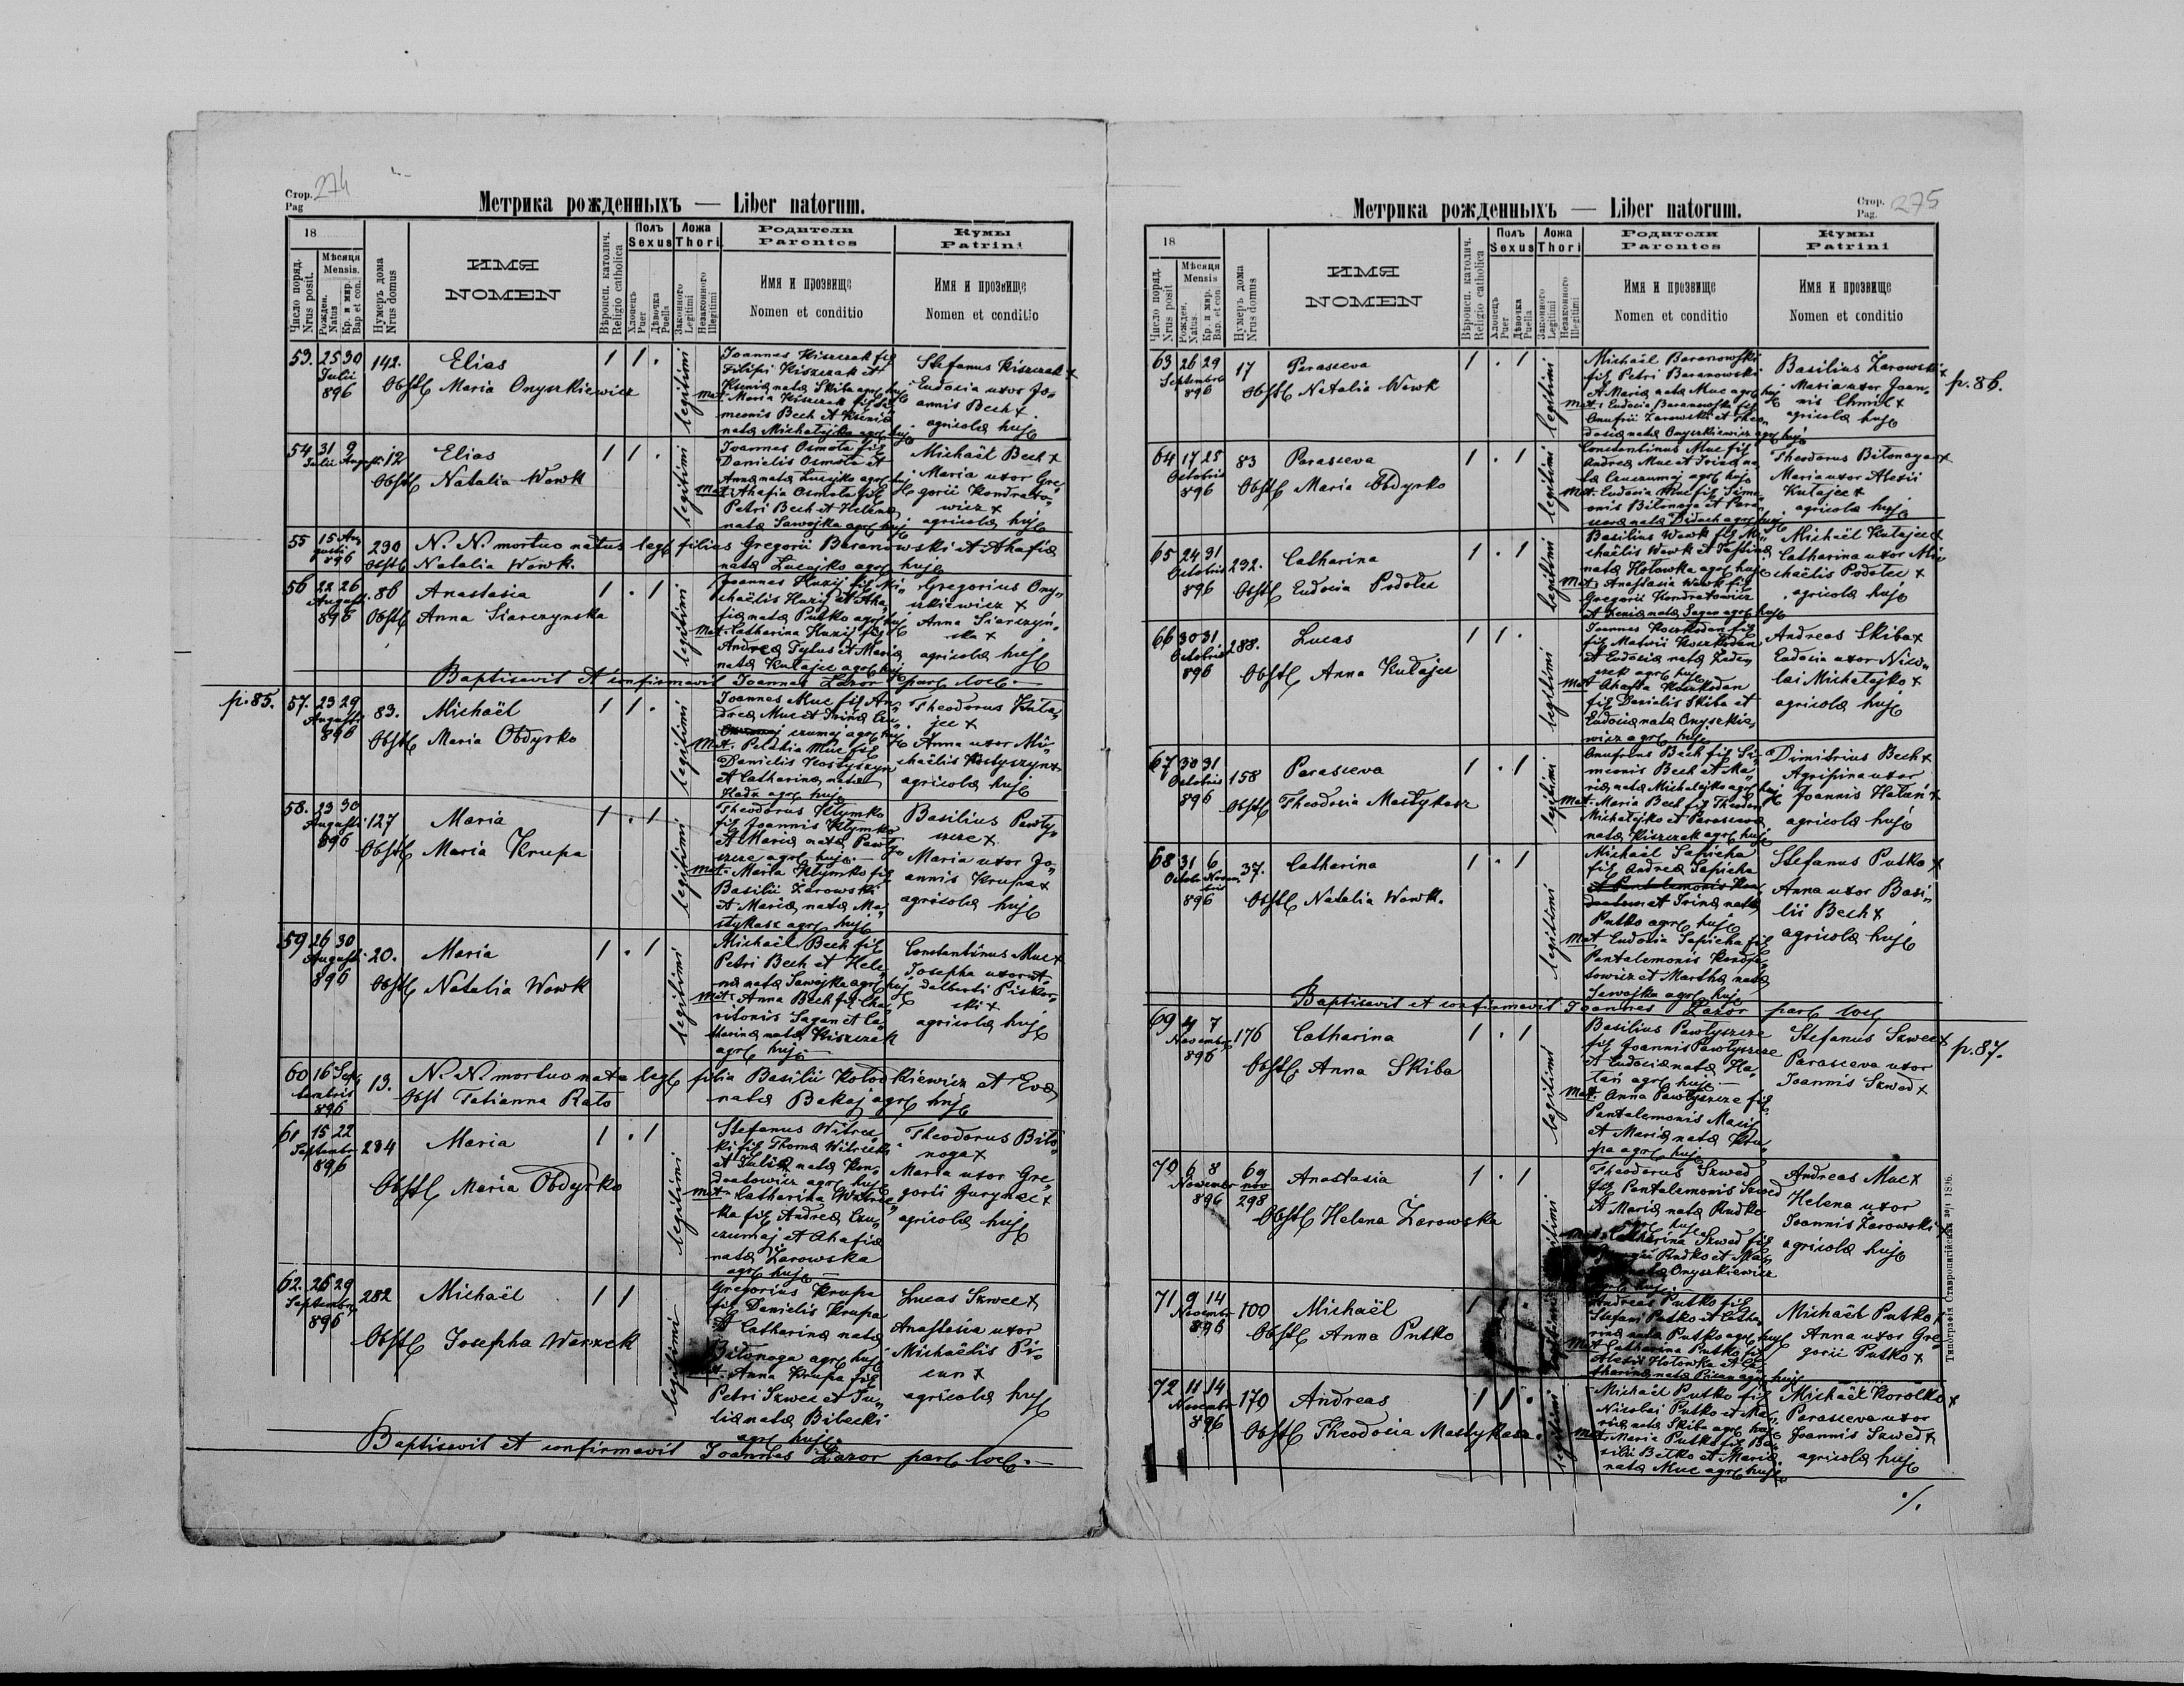 Стор. 274
Pag
Метрика рожденныхъ — Liber natorum.
18
Число поряд.
Nrus posit.
Мѣсяця
Mensis.
Рожден.
Natus
Кр. и мир.
Bap et con.
Нумеръ дома
Nrus domus
ИМЯ
NOMEN
Вѣроисп. католич.
Religio catholica
Полъ
Sexus
Хлопецъ
Puer
Дѣвочка
Puella
Ложа
Thori
Законного
Legitimi
Незаконного
Illegitimi
Родители
Parentes
Имя и прозвище
Nomen et conditio
Кумы
Patrini
Имя и прозвище
Nomen et conditio
53. 25 30 142. Elias 1 1 .
Julii
896
Obst Maria Onyszkiewicz
legitimi
Joannes Kiszczak fil
Filipi Kiszczak et
Ksenia nata Skiba agr huj
Mat. Maria Kiszczak fil Si„
meonis Bech et Ksenia
nata Michalejko agr huj
Stefanus Kiszczak +
Eudocia uxor Jo„
annis Bech +
agricola huj
54 31 9 12 Elias 1 1 .
Julii Augusti
Obst Natalia Wowk
legitimi
Joannes Osmola fil
Danielis Osmola et
Anna nata Lucejko agr huj
Mat. Ahafia Osmola fil
Petri Bech et Helena
nata Sawojka agr huj
Michaël Bech +
Maria uxor Gre„
gorii Kondrato„
wicz +
agricola huj
55 15 Au„
gusti
896 290 N. N. mortuo natus leg filius Gregorii Baranowski et Ahafia
Obst Natalia Wowk. nata Lucejko agr huj
56 22 26 86 Anastasia 1 . 1
Augusti
896
Obst Anna Siarczynska
legitimi
Joannes Huzij fil Mi„
chaëlis Huzij et Aha„
fia nata Putko agr huj
Mat. Catharina Huzij fil
Andrea Tytus et Maria
nata Kutajec agr huj
Gregorius Ony„
szkiewicz +
Anna Siarczyń„
ska +
agricola huj
Baptisavit et confirmavit Joannes Lazor par loc.
p. 85. 57. 23 29 83. Michaël 1 1 .
Augusti
896
Obst Maria Obdyrko
legitimi
Joannes Muc fil An„
drea Muc et Irina Cu„
czumaj agr huj
Mat. Pelahia Muc fil
Danielis Kostyszyn
et Catharina nata
Hadz agr huj
Theodorus Kuta„
jec +
Anna uxor Mi„
chaëlis Kostyszyn +
agricola huj
58. 23 30 127 Maria 1 . 1
Augusti
896
Obst Maria Krupa
legitimi
Theodorus Klymko
fil Joannis Klymko
et Maria nata Pawły„
szcze agr huj
Mat. Maria Klymko fil
Basilii Żarowski
et Maria nata Ma„
stykasz agr huj
Basilius Pawły„
szcze +
Maria uxor Jo„
annis Krupa +
agricola huj
59 26 30 20. Maria 1 . 1
Augusti
896
Obst Natalia Wowk
legitimi
Michaël Bech fil
Petri Bech et Hele„
na nata Sawojka agr huj
Mat. Anna Bech fil Cha„
ritonis Sagan et Ca„
tharina nata Kiszczak
agr huj
Constantinus Muc +
Josepha uxor A„
dalberti Piskor„
ski +
agricola huj
60 16 Sep„
tembris
896 13. N. N. mortuo nata leg filia Basilii Kołodkiewicz et Eva
Obst Tatianna Rato nata Bakaj agr huj
61 15 22 284 Maria 1 . 1
Septembr
896
Obst Maria Obdyrko
legitimi
Stefanus Witrec„
ki fil Thoma Witrecki
et Julia nata Kon„
dratowicz agr huj
Mat. Catharina Witrec„
ka fil Andrea Cu„
czumaj et Ahafia
nata Żarowska
agr huj
Theodorus Biło„
noga +
Maria uxor Gre„
gorii Jurynec +
agricola huj
62. 26 29 282 Michaël 1 1
Septembr
896
Obst Josepha Warzek
legitimi
Gregorius Krupa
fil Danielis Krupa
et Catharina nata
Biłonoga agr huj
Anna Krupa fil
Petri Szwec et Ju„
lia nata Bibecki
agr huj
Lucas Szwec +
Anastasia uxor
Michaëlis Pi„
cun +
agricola huj
Baptisavit et confirmavit Joannes Lazor par loc.
Метрика рожденныхъ — Liber natorum.
Стор. 275
Pag.
18
Число поряд.
Nrus posit
Мѣсяця
Mensis
Рожден.
Natus.
Кр. и мир.
Bap. et con
Нумеръ дома
Nrus domus
ИМЯ
NOMEN
Вѣроисп. католич.
Religio catholica
Полъ
Sexus
Хлопецъ
Puer
Дѣвочка
Puella
Ложа
Thori
Законного
Legitimi
Незаконного
Illegitimi
Родители
Parentes
Имя и прозвище
Nomen et conditio
Кумы
Patrini
Имя и прозвище
Nomen et conditio
63 26 29 17 Parasceva 1 . 1
Septembris
896
Obst Natalia Wowk
legitimi
Michaël Baranowski
fil Petri Baranowski
et Maria nata Muc agr huj
Mat. Eudocia Baranowska fil
Onufrii Zarowski et Theo„
dosia nata Onyszkiewicz agr huj
Basilius Zarowski +
Maria uxor Joan„
nis Chmil +
agricola huj
p. 86.
64 17 25 83 Parasceva 1 . 1
Octobris
896
Obst Maria Obdyrko
legitimi
Constantinus Muc fil
Andrea Muc et Irina na„
ta Cuczumaj agr huj
Mat. Eudocia Muc fil Sime„
onis Biłonoga et Para„
sceva nata Didoch agr huj
Theodorus Biłonoga +
Maria uxor Alexii
Kutajec +
agricola huj
65 24 31 292. Catharina 1 . 1
Octobris
896
Obst Eudocia Podolec
legitimi
Basilius Wowk fil Mi„
chaëlis Wowk et Justina
nata Hołowka agr huj
Mat. Anastasia Wowk fil
Gregorii Kondratowicz
et Xenia nata Sagan agr huj
Michaël Kutajec +
Catharina uxor Mi„
chaëlis Podolec +
agricola huj
66 30 31 288. Lucas 1 1 .
Octobris
896
Obst Anna Kutajec
legitimi
Joannes Koszkodan fil
fil Mathii Koszkodan
et Eudocia nata
agr huj
Mat. Ahafia Koszkodan
fil Danielis Skiba et
Eudocia nata Onyszkie„
wicz agr huj
Andreas Skiba +
Eudocia uxor Nico„
lai Michalejko +
agricola huj
67 30 31 158 Parasceva 1 . 1
Octobris
896
Obst Theodosia Mastykasz
legitimi
Onufrius Bech fil Si„
meonis Bech et Ma„
ria nata Michalejko agr huj
Mat. Maria Bech fil Theodori
Michalejko et Parasceva
nata Kiszczak agr huj
Dimitrius Bech +
Agripina uxor
Joannis Hatań +
agricola huj
68 31 6 37. Catharina 1 . 1
Octobr Novem„
bris
896
Obst Natalia Wowk.
legitimi
Michaël Sapieha
fil Andrea Sapieha
et Irina nata
Putko agr huj
Mat Eudocia Sapieha fil
Pantalemonis Kondra„
towicz et Martha nata
Sawojka agr huj
Stefanus Putko +
Anna uxor Basi„
lii Bech +
agricola huj
Baptisavit et confirmavit Joannes Lazor par loc
69 4 7 176 Catharina 1 . 1
Novembr
896
Obst Anna Skiba
legitimi
Basilius Pawłyszcze
fil Joannis Pawłyszcze
et Eudocia nata Ha„
tań agr huj
Mat. Anna Pawłyszcze fil
Pantalemonis Macij
et Maria nata Kru„
pa agr huj
Stefanus Szwec +
Parasceva uxor
Joannis Szwed +
p. 87.
70 6 8 69 Anastasia 1 . 1
Novembr nov
896 298
Obst Helena Żarowska
Theodorus Szwed
fil Pantalemonis Szwed
et Maria nata Rudko
agr huj
Catharina Szwed fil
Rudko et Ma„
nata Onyszkiewicz
agr huj
Andreas Muc +
Helena uxor
Joannis Żarowski +
agricola huj
71 9 14 100 Michaël 1 1 .
Novembr
896
Obst Anna Putko
legitimi
Andreas Putko fil
Stefani Putko et Catha„
rina nata Putko agr huj
Mat Catharina Putko fil
Alexii Hołowka et Ca„
tharina nata Picun agr huj
Michaël Putko +
Anna uxor Gre„
gorii Putko +
72 11 14 170 Andreas 1 1 .
Novembr
896
Obst Theodosia Mastykasz.
legitimi
Michaël Putko fil
Nicolai Putko et Ma„
ria nata Skiba agr huj
Mat. Maria Putko fil Ba„
silii Betko et Maria
nata Muc agr huj
Michaël Korolko +
Parasceva uxor
Joannis Szwed +
agricola huj
./.
Типографія Ставропигійская 1896.